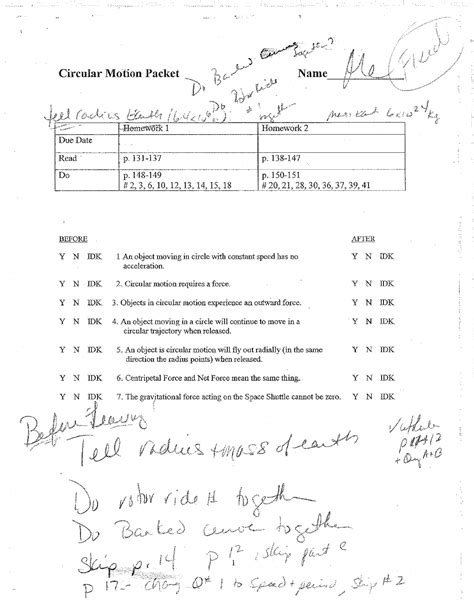 Do Banked Curve together?
Circular Motion Packet
Name
Do Rotor ride
#1
together
Tell radius Earth
mass Earth 6x10^24 kg
Homework 1 Homework 2
Due Date
Read p. 131-137 p. 138-147
Do p. 148-149 p. 150-151
# 2, 3, 6, 10, 12, 13, 14, 15, 18 # 20, 21, 28, 30, 36, 37, 39, 41
BEFORE AFTER
Y N IDK 1 An object moving in circle with constant speed has no Y N IDK
acceleration.
Y N IDK 2. Circular motion requires a force. Y N IDK
Y N IDK 3. Objects in circular motion experience an outward force. Y N IDK
Y N IDK 4. An object moving in a circle will continue to move in a Y N IDK
circular trajectory when released.
Y N IDK 5. An object is circular motion will fly out radially (in the same Y N IDK
direction the radius points) when released.
Y N IDK 6. Centripetal Force and Net Force mean the same thing. Y N IDK
Y N IDK 7. The gravitational force acting on the Space Shuttle cannot be zero. Y N IDK
Before leaving
Tell radius + mass of earth
Do rotor ride #1 together
Do Banked curve together
Skip p. 14 p 12 skip part e
p 17 - chang Q# 1 to speed + period, skip # 2